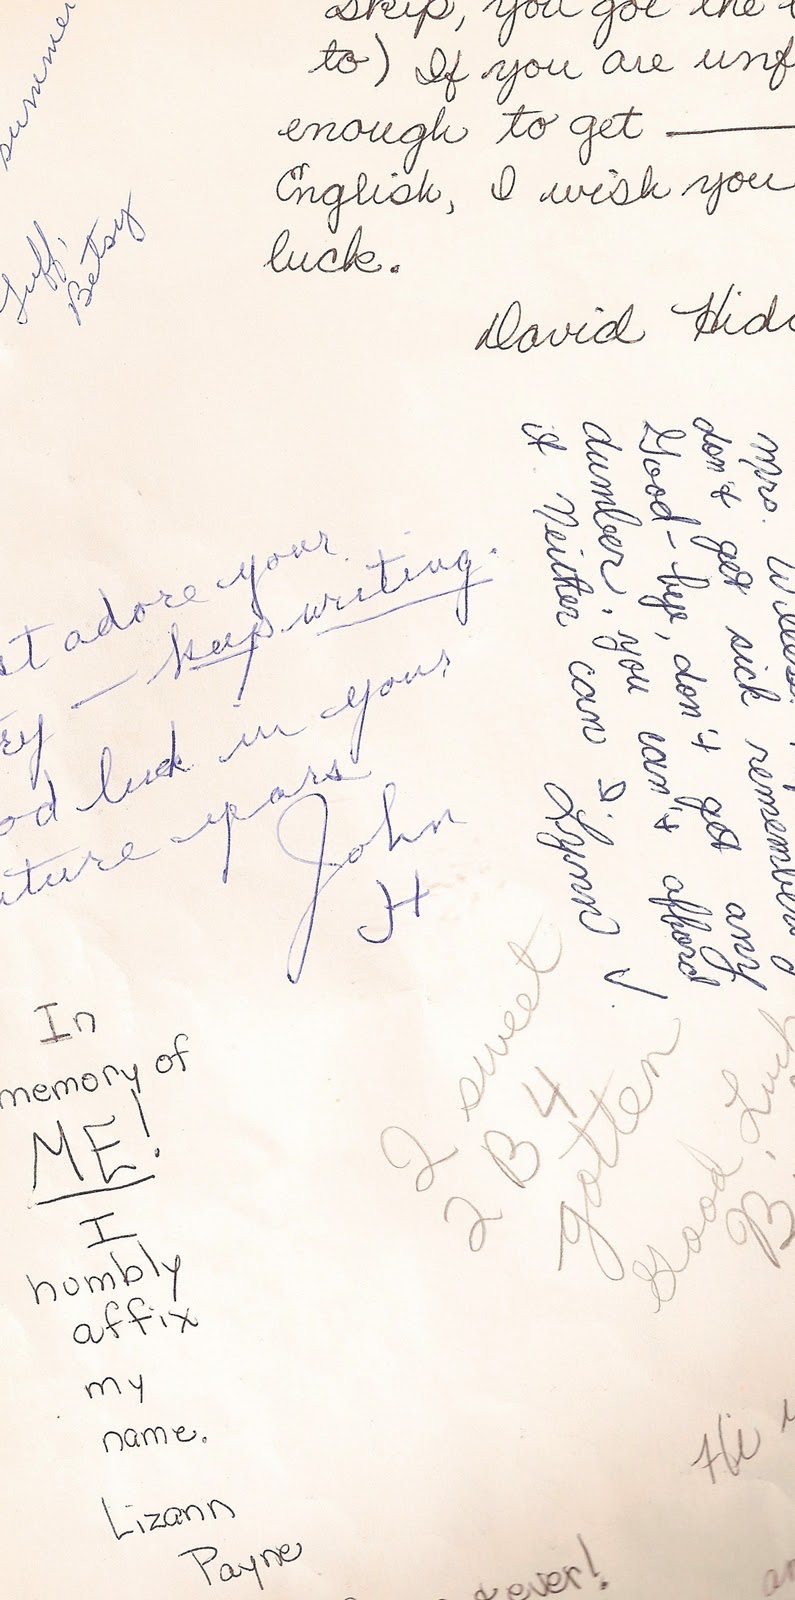 summer
Luff,
Betsy
skip, you got the
to) If you are unf
enough to get ——
English, I wish you
luck.
David Hid
Mrs.
don't get sick remember
Good-bye, don't get any
dumber, you can't afford
it. Neither can I.
Lynn
st adore your
ry — keep writing.
od luck in your
uture years
John
H
2 sweet
2 B 4
gotten
Good Luck
B.
In
memory of
ME!
I
humbly
affix
my
name.
Lizann
Payne
Hi
ever!